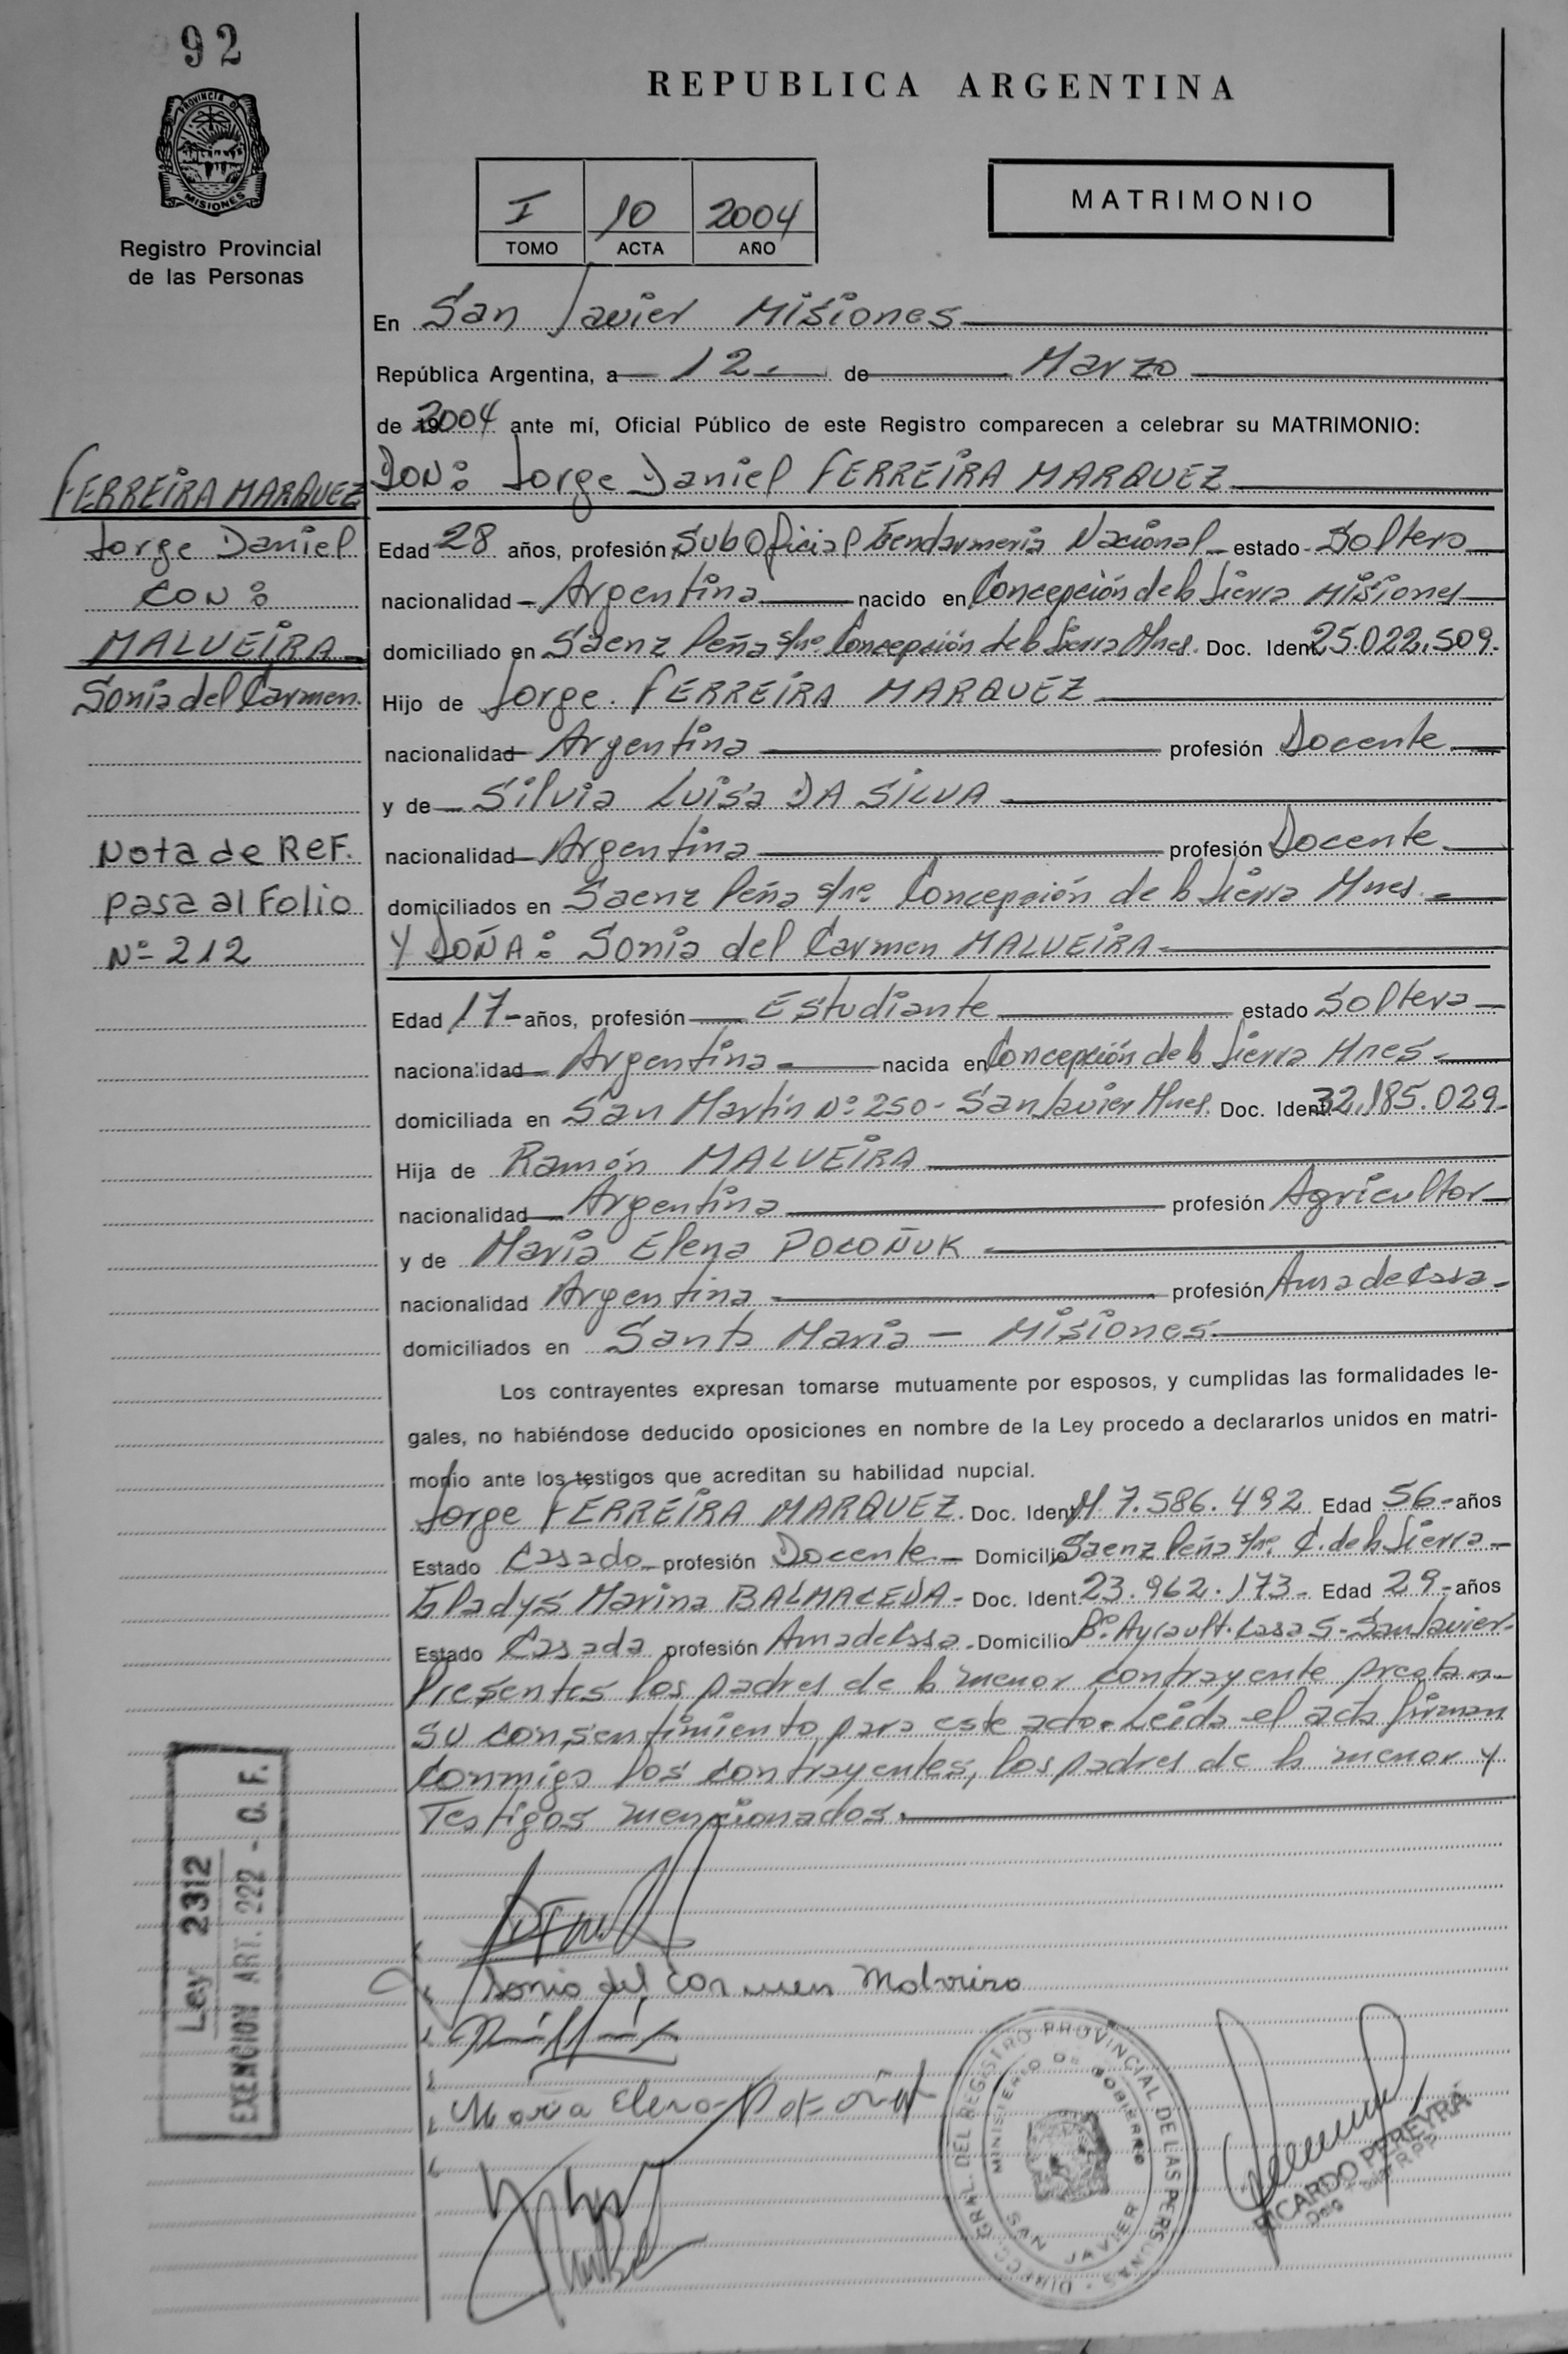 92
PROVINCIA DE
MISIONES
Registro Provincial
de las Personas
REPUBLICA ARGENTINA
I 10 2004
TOMO ACTA AÑO
MATRIMONIO
En San Javier Misiones
República Argentina, a 12 de Marzo
de 2004 ante mí, Oficial Público de este Registro comparecen a celebrar su MATRIMONIO:
DON: Jorge Daniel FERREIRA MARQUEZ
Edad 28 años, profesión SubOficial Gendarmeria Nacional estado Soltero
nacionalidad Argentina nacido en Concepción de la Sierra Misiones
domiciliado en Saenz Peña s/nº Concepción de la Sierra Mnes. Doc. Ident 25.022.509.
Hijo de Jorge. FERREIRA MARQUEZ
nacionalidad Argentina profesión Docente
y de Silvia Luisa DA SILVA
nacionalidad Argentina profesión Docente
domiciliados en Saenz Peña s/nº Concepción de la Sierra Mnes.
Y DOÑA: Sonia del Carmen MALVEIRA
Edad 17 años, profesión Estudiante estado Soltera
nacionalidad Argentina nacida en Concepción de la Sierra Mnes
domiciliada en San Martín Nº 250 - San Javier Mnes. Doc. Ident 32.185.029.
Hija de Ramón MALVEIRA
nacionalidad Argentina profesión Agricultor
y de María Elena POCOÑUK
nacionalidad Argentina profesión Ama de casa
domiciliados en Santa María - Misiones
Los contrayentes expresan tomarse mutuamente por esposos, y cumplidas las formalidades le-
gales, no habiéndose deducido oposiciones en nombre de la Ley procedo a declararlos unidos en matri-
monio ante los testigos que acreditan su habilidad nupcial.
Jorge FERREIRA MARQUEZ. Doc. Ident M 7.586.492 Edad 56 años
Estado Casado profesión Docente Domicilio Saenz Peña s/nº C. de la Sierra
Gladys Marina BALMACEDA - Doc. Ident 23.962.173 - Edad 29 años
Estado Casada profesión Ama de casa - Domicilio Bº Ayrault. Casa 5 - San Javier
Presentes los padres de la menor contrayente prestan
su consentimiento para este acto. Leída el acta firman
Conmigo los contrayentes, los padres de la menor y
Testigos mencionados.
FERREIRA MARQUEZ
Jorge Daniel
CON:
MALVEIRA
Sonia del Carmen.
Nota de Ref.
pasa al Folio
Nº 212
Ley 2312
EXENCION ART. 222 - O. F.
Sonia del Carmen Malveira
Maria Elena
DIRECC. GRAL. DEL REGISTRO PROVINCIAL DE LAS PERSONAS
MINISTERIO DE GOBIERNO
SAN JAVIER
RICARDO PEREYRA